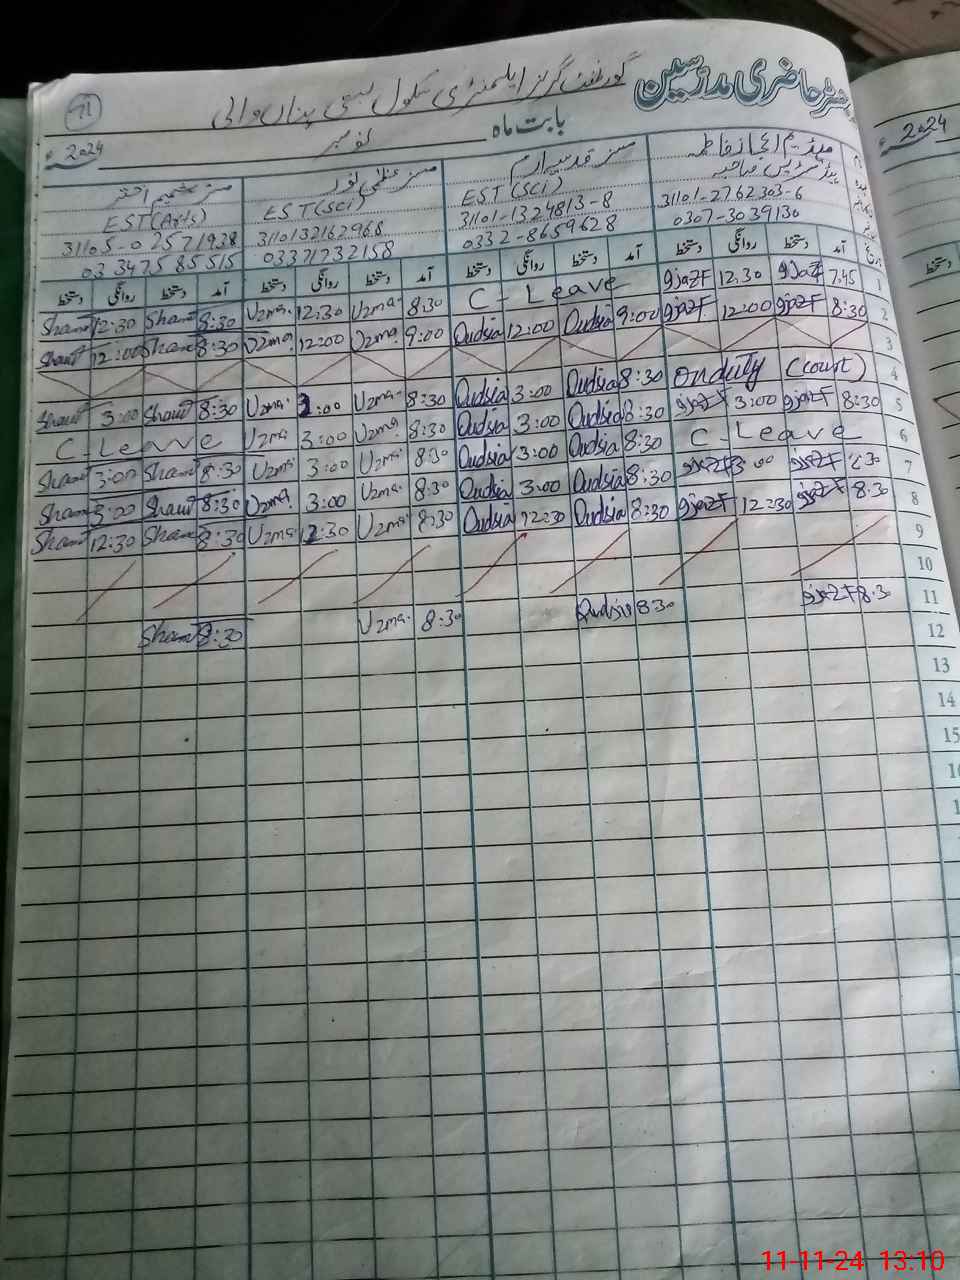 رجسٹر حاضری مدرسین
گورنمنٹ گرلز ایلیمنٹری سکول بستی
71
بابت ماہ نومبر 2024ء
میڈیم اعجاز فاطمہ
ہیڈمسٹریس صاحبہ
31101-2762303-6
0307-3039130
مسز قدسیہ ارم
EST (Sci)
31101-1324813-8
0332-8659628
مسز عظمیٰ نور
EST (Sci)
3110132162968
03371732158
مسز شمیم اختر
EST (Arts)
31105-0257193-8
03347585515
آمد دستخط روانگی دستخط آمد دستخط روانگی دستخط آمد دستخط روانگی دستخط آمد دستخط روانگی دستخط
1 7.45 9jazF 12.30 9jazF C-Leave 8:30 Uzma 12:30 Uzma 8:30 Sham 12:30 Sham
2 8:30 9jazF 12:00 9jazF 9:00 Qudsia 12:00 Qudsia 9:00 Uzma 12:00 Uzma 8:30 Sham 12:00 Sham
3
4 onduty (court) 8:30 Qudsia 3:00 Qudsia 8:30 Uzma :00 Uzma 8:30 Sham 3:00 Sham
5 8:30 9jazF 3:00 9jazF 8:30 Qudsia 3:00 Qudsia 8:30 Uzma 3:00 Uzma C-Leave
6 C-Leave 8:30 Qudsia 3:00 Qudsia 8:30 Uzma 3:00 Uzma 8:30 Sham 3:00 Sham
7 9jazF 9jazF 8:30 Qudsia 3:00 Qudsia 8:30 Uzma 3:00 Uzma 8:30 Sham 3:00 Sham
8 8:30 9jazF 12:30 9jazF 8:30 Qudsia 12:30 Qudsia 8:30 Uzma 12:30 Uzma 8:30 Sham 12:30 Sham
9
10
11 8:30 9jazF 8:30 Qudsia 8:30 Uzma 8:30 Sham
12
13
14
15
2024ء
11-11-24 13:10